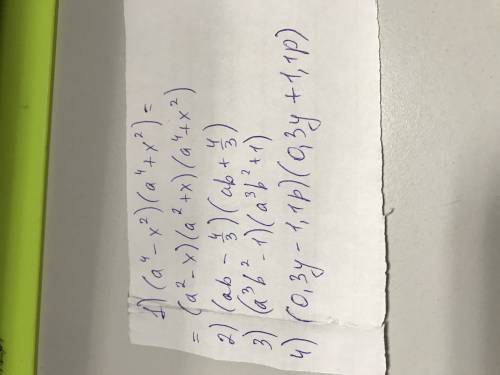 1) (a⁴ - x²)(a⁴ + x²) =
= (a² - x)(a² + x)(a⁴ + x²)
2) (ab - 4/3)(ab + 4/3)
3) (a³b² - 1)(a³b² + 1)
4) (0,3y - 1,1p)(0,3y + 1,1p)